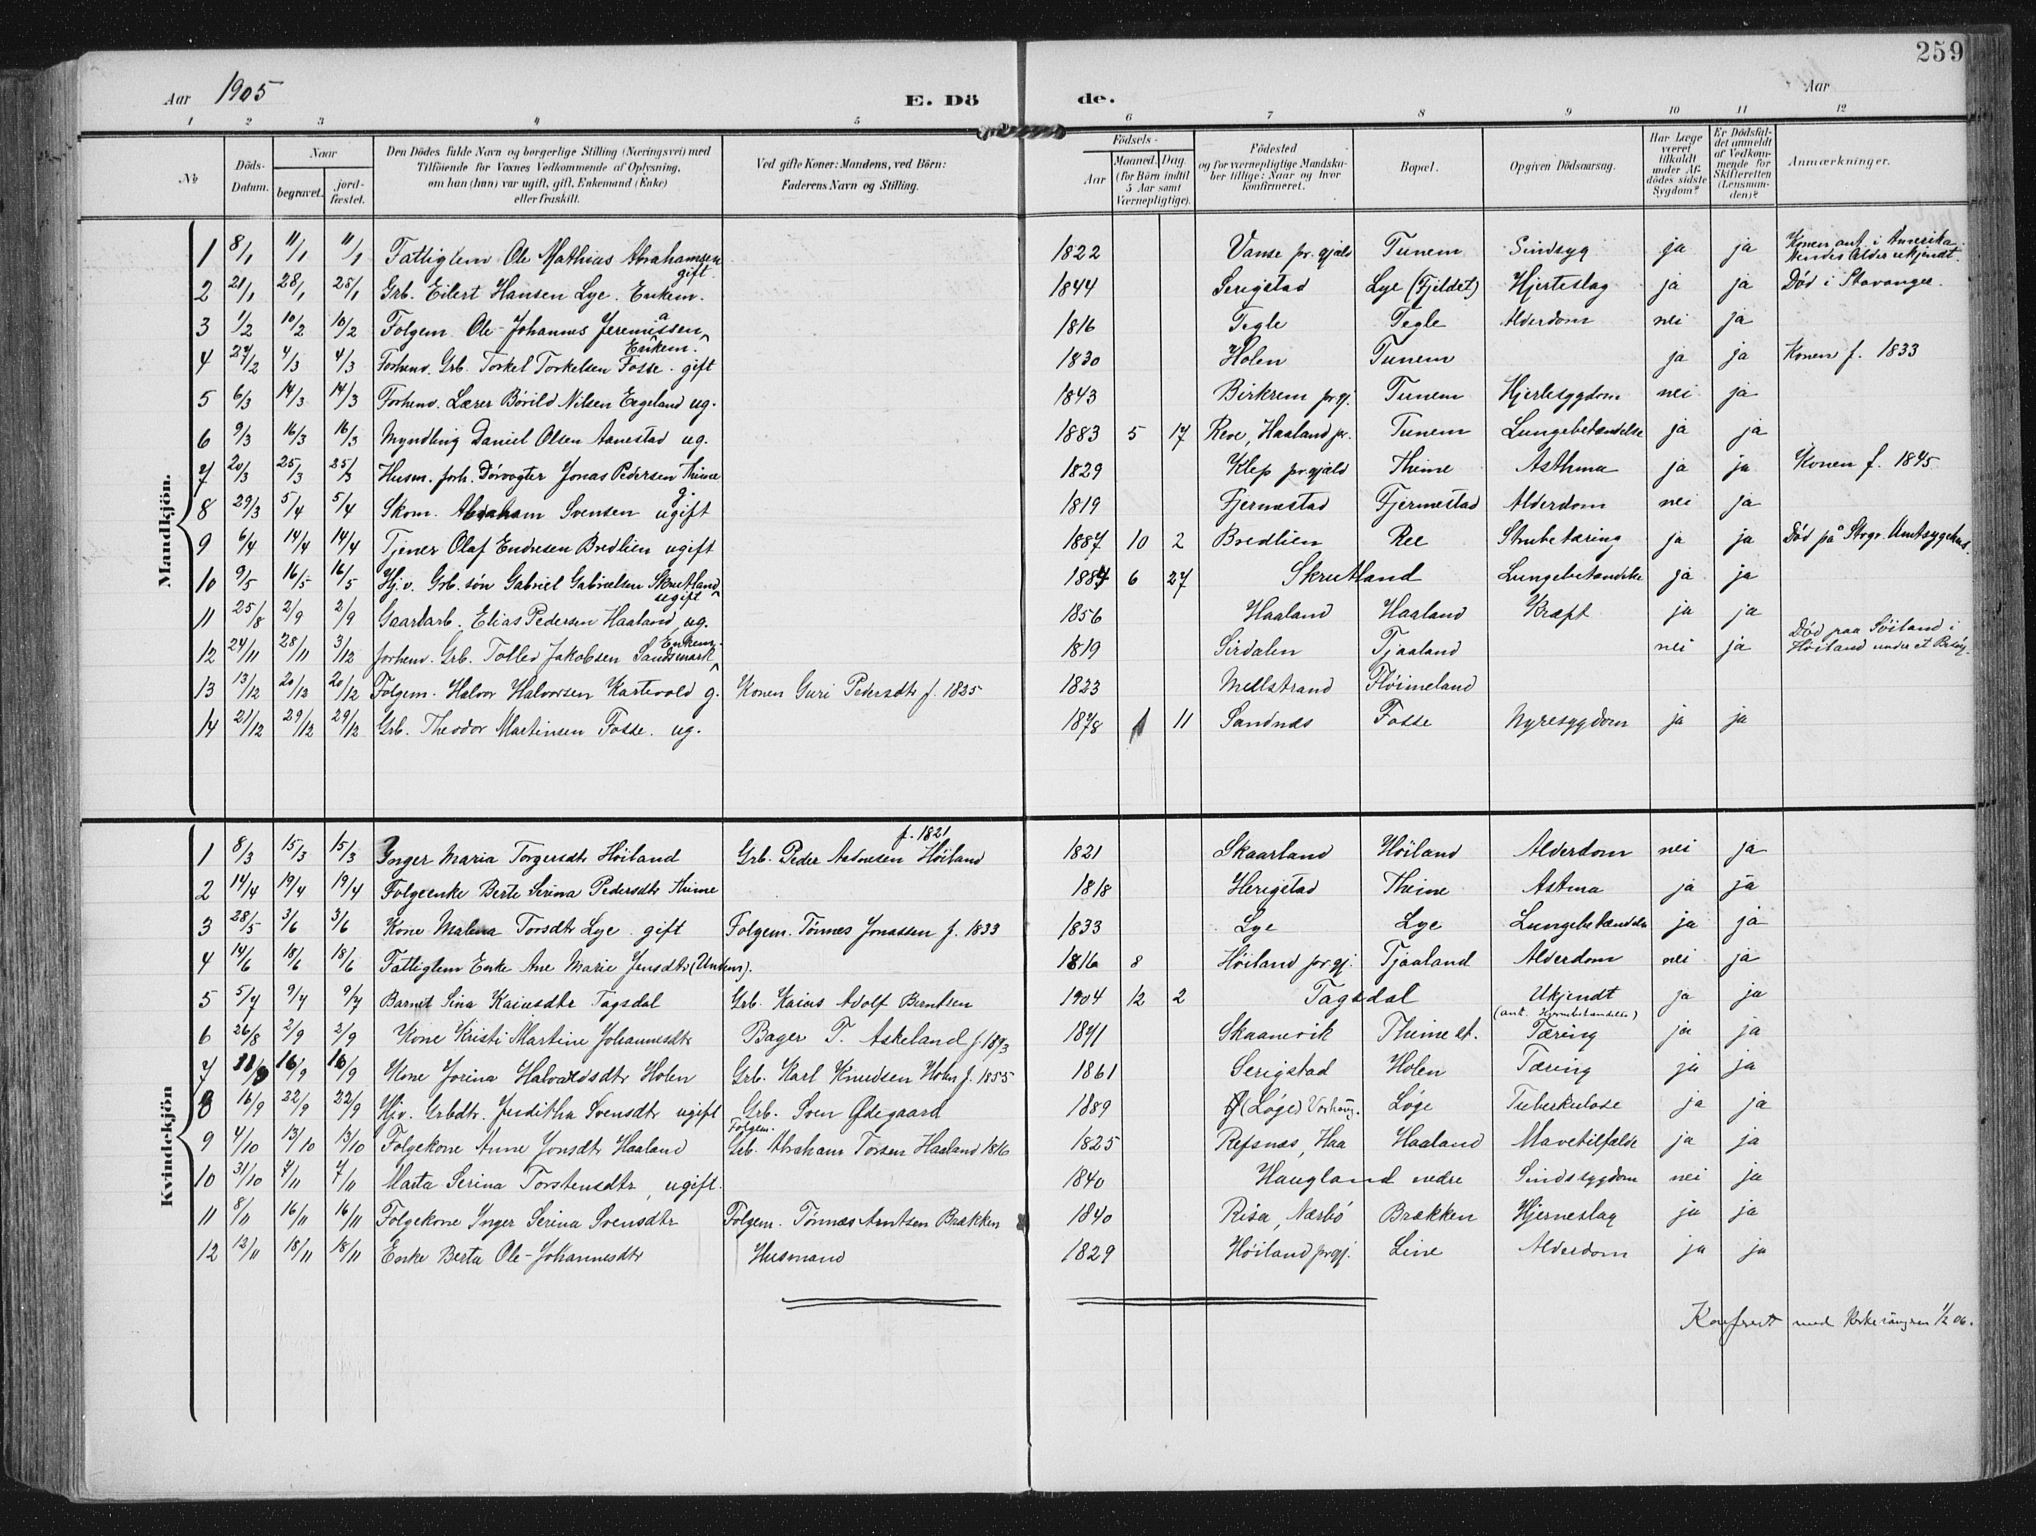 259
Aar 1905
E. Dö
de.
Aar
1 2 3 4 5 6 7 8 9 10 11 12
No
Döds-Datum.
Naar
begravet.
jord-fæstet.
Den Dödes fulde Navn og borgerlige Stilling (Næringsvei) med
Tilföiende for Voxnes Vedkommende af Oplysning,
om han (hun) var ugift, gift, Enkemand (Enke)
eller fraskilt.
Ved gifte Koner: Mandens, ved Börn:
Faderens Navn og Stilling.
Födsels-
Aar
Maaned. Dag.
(for Börn indtil
5 Aar samt
Værnepligtige).
Födested
og for værnepligtige Mandska-
ber tillige: Naar og hvor
konfirmeret.
Bopæl.
Opgiven Dödsaarsag.
Har Læge
været
tilkaldt
under Af-
dödes sidste
Sygdom?
Er Dödsfal-
det anmeldt
af Vedkom-
mende for
Skifteretten
(Lensman-
den)?
Anmærkninger.
Mandkjön.
1 8/1 11/1 11/1 Fattiglem Ole Mathias Abrahamsen gift 1822 Vanse pr.gjæld Tunem Sindsyg ja ja Konen ant. i Amerika hendes Alder ukjendt.
2 21/1 28/1 28/1 Grb. Eilert Hansen Lye. Enkem. 1844 Serigstad Lye (Fjeldet) Hjerteslag ja ja Död i Stavanger.
3 1/2 10/2 10/2 Folgem. Ole-Johannes Jeremiassen Enkem. 1816 Tegle Tegle Alderdom nei ja
4 24/2 4/3 4/3 Forhenv. Grb. Torkel Torkelsen Fosse. gift 1830 Holen Tunem ja ja Konen f. 1833
5 6/3 14/3 14/3 Forhenv. Lærer Börild Nilsen Eegeland ug. 1843 Birkrem prgj. Tunem Hjertesygdom nei ja
6 9/3 16/3 16/3 Myndling Daniel Olsen Aanestad ug. 1883 5 17 Reve, Haaland pr. Tunem Lungebetændelse ja ja
7 20/3 25/3 25/3 Husm. forh. Dörvogter Jonas Pedersen Thime g. 1829 Klep pr.gjæld Thime Asthma ja ja Konen f. 1845
8 29/3 5/4 5/4 Skom. Abraham Svensen ugift 1819 Fjermestad Fjermestad Alderdom nei ja
9 6/4 14/4 14/4 Tjener Olaf Endresen Bredlien ugift 1887 10 2 Bredlien Ree Strubetæring ja ja Död på Stvgr. Amtssygehus.
10 9/5 16/5 16/5 Hj.v. Grb. sön Gabriel Gabrielsen Skrutland ugift 1884 6 27 Skrutland Lungebetændelse ja ja
11 25/8 2/9 2/9 Gaardarb. Elias Pedersen Haaland, ug. 1856 Haaland Haaland Kræft ja ja
12 24/11 28/11 3/12 Forhenv. Grb. Tollev Jakobsen Sandsmark Enkem. 1819 Sirdalen Tjaaland nei ja Död paa Söiland i Höiland under et Besög.
13 13/12 20/12 20/12 Folgem. Halvor Halvorsen Kartevold g. Konen Guri Pedersdtr f. 1825 1823 Mellstrand Flöimeland
14 21/12 29/12 29/12 Grb. Theodor Martinsen Fosse. ug. 1878 1 11 Sandnæs Fosse Nyresygdom ja ja
Kvindekjön
1 8/3 15/3 15/3 Inger Maria Torgersdtr Höiland Grb. Peder Aadnesen Höiland f. 1821 1821 Skaarland Höiland Alderdom nei ja
2 14/4 19/4 19/4 Folgeenke Berte Serina Pedersdtr Thime 1818 Herigstad Thime Astma ja ja
3 28/5 3/6 3/6 Kone Malena Torsdtr Lye. gift Folgem. Tönnes Jonassen f. 1833 1833 Lye Lye Lungebetændelse ja ja
4 14/6 18/6 18/6 Fattiglem Enke Ane Marie Jensdtr (Undem). 1816 8 Höiland prgj. Tjaaland Alderdom nei ja
5 5/7 9/7 9/7 Barnet Sina Kaiusdtr Tagsdal Grb. Kaius Adolf Berntsen 1904 12 2 Tagsdal Ukjendt (ant. Hjernebetændelse) ja ja
6 26/8 2/9 2/9 Kone Kristi Martine Johannesdtr Bager T. Askeland f. 1873 1871 Skaanevik Thime st. Tæring ja ja
7 16/9 16/9 Kone Jorina Halvaldsdtr Holen Grb. Karl Knudsen Holen f. 1855 1861 Serigstad Holen Tæring ja ja
8 16/9 22/9 22/9 Hjv. Grbdtr. Juditha Svensdtr ugift Grb. Sven Ödegaard 1889 (Löge) Varhaug. Löge Tuberkulose ja ja
9 4/10 13/10 13/10 Folgekone Anne Jonsdtr Haaland Folgem. Grb. Abraham Torsen Haaland 1816 1825 Refsnæs, Haa Haaland Mavetilfælde ja ja
10 31/10 7/11 7/11 Marta Serina Torstensdtr, ugift. 1840 Haugland nedre Sindssygdom nei ja
11 8/11 16/11 16/11 Folgekone Inger Serina Svensdtr Folgem. Tönnæs Arntsen Brækken 1840 Risa, Nærbö Brækken Hjerneslag ja ja
12 12/11 18/11 18/11 Enke Berta Ole-Johannesdtr Husmand 1829 Höiland prgj. Line Alderdom ja ja
Konferert med 1/2 06.